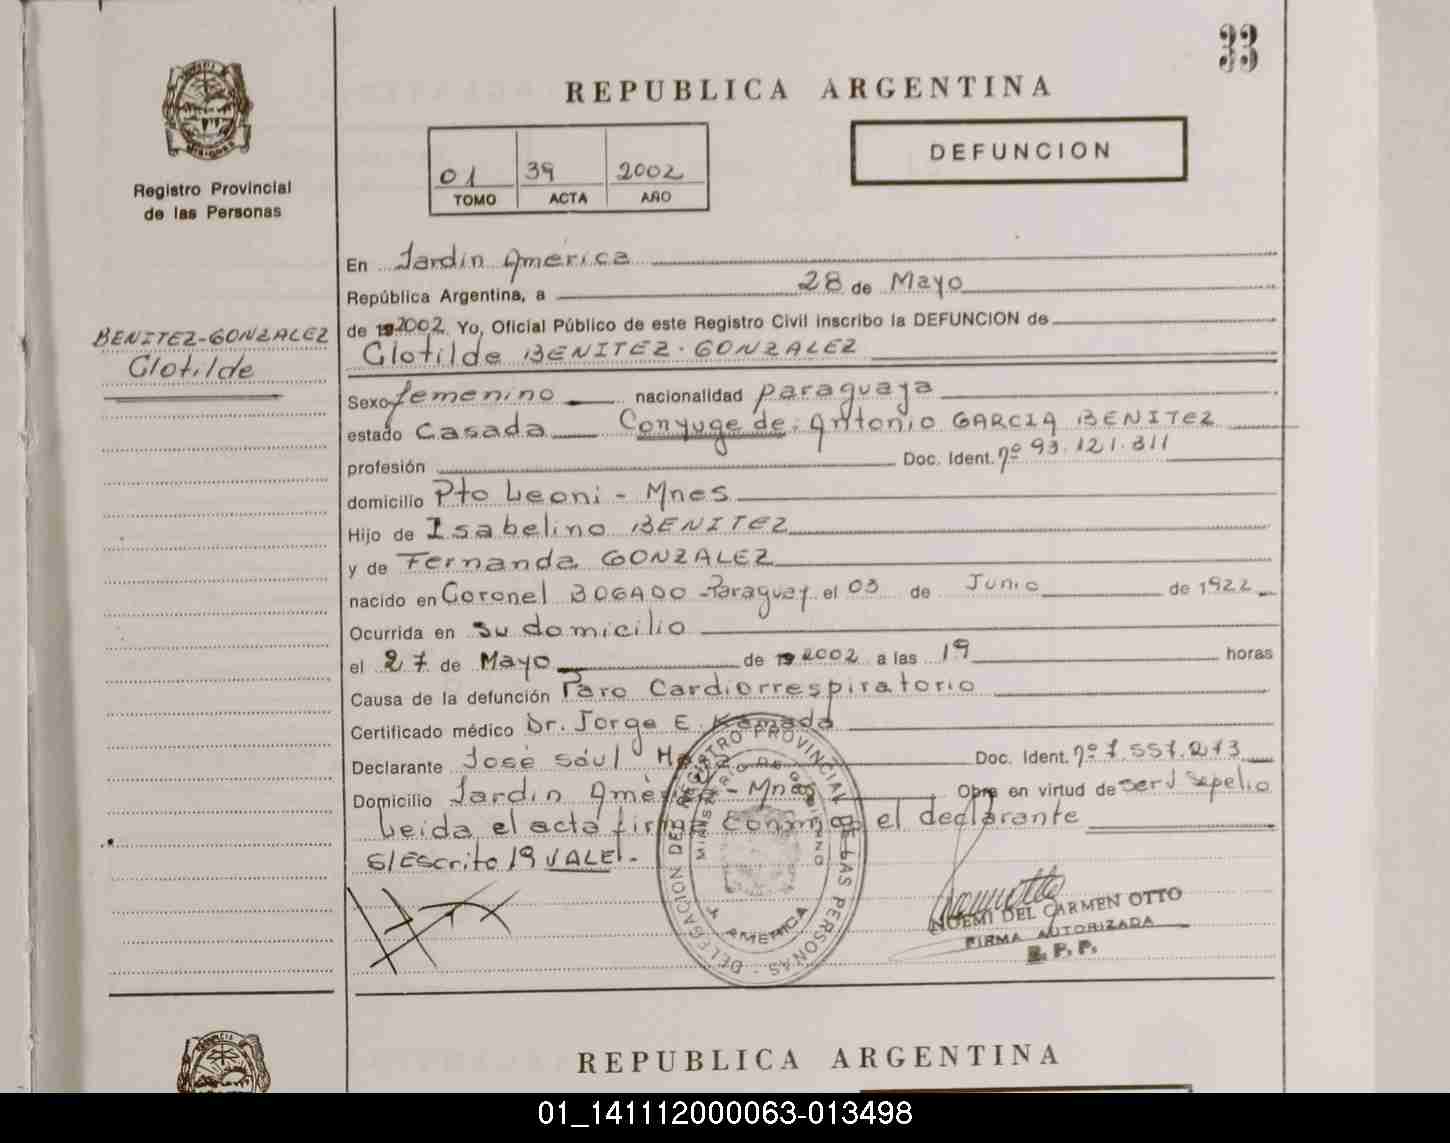 33
REPUBLICA ARGENTINA
DEFUNCION
01 39 2002
TOMO ACTA AÑO
MISIONES
Registro Provincial
de las Personas
BENITEZ-GONZALEZ
Clotilde
En Jardin América
República Argentina, a 28 de Mayo
de 192002 Yo, Oficial Público de este Registro Civil inscribo la DEFUNCION de
Clotilde BENITEZ-GONZALEZ
Sexo femenino nacionalidad paraguaya
estado Casada Conyuge de: Antonio GARCIA BENITEZ
profesión Doc. Ident. nº 93.121.311
domicilio Pto Leoni - Mnes
Hijo de Isabelino BENITEZ
y de Fernanda GONZALEZ
nacido en Coronel BOGADO - Paraguay el 03 de Junio de 1922
Ocurrida en su domicilio
el 27 de Mayo de 192002 a las 19 horas
Causa de la defunción Paro Cardiorrespiratorio
Certificado médico Dr. Jorge E. Kamada
Declarante José Saúl Doc. Ident. nº 7.557.273
Domicilio Jardin América - Mnes Obra en virtud de Serv Sepelio
Leida el acta firma conmigo el declarante
S/Escrito 19 VALE.-
DELEGACION DEL REGISTRO PROVINCIAL DE LAS PERSONAS
MINISTERIO DE GOBIERNO
J. AMERICA
NOEMI DEL CARMEN OTTO
FIRMA AUTORIZADA
R. P. P.
REPUBLICA ARGENTINA
01_141112000063-013498